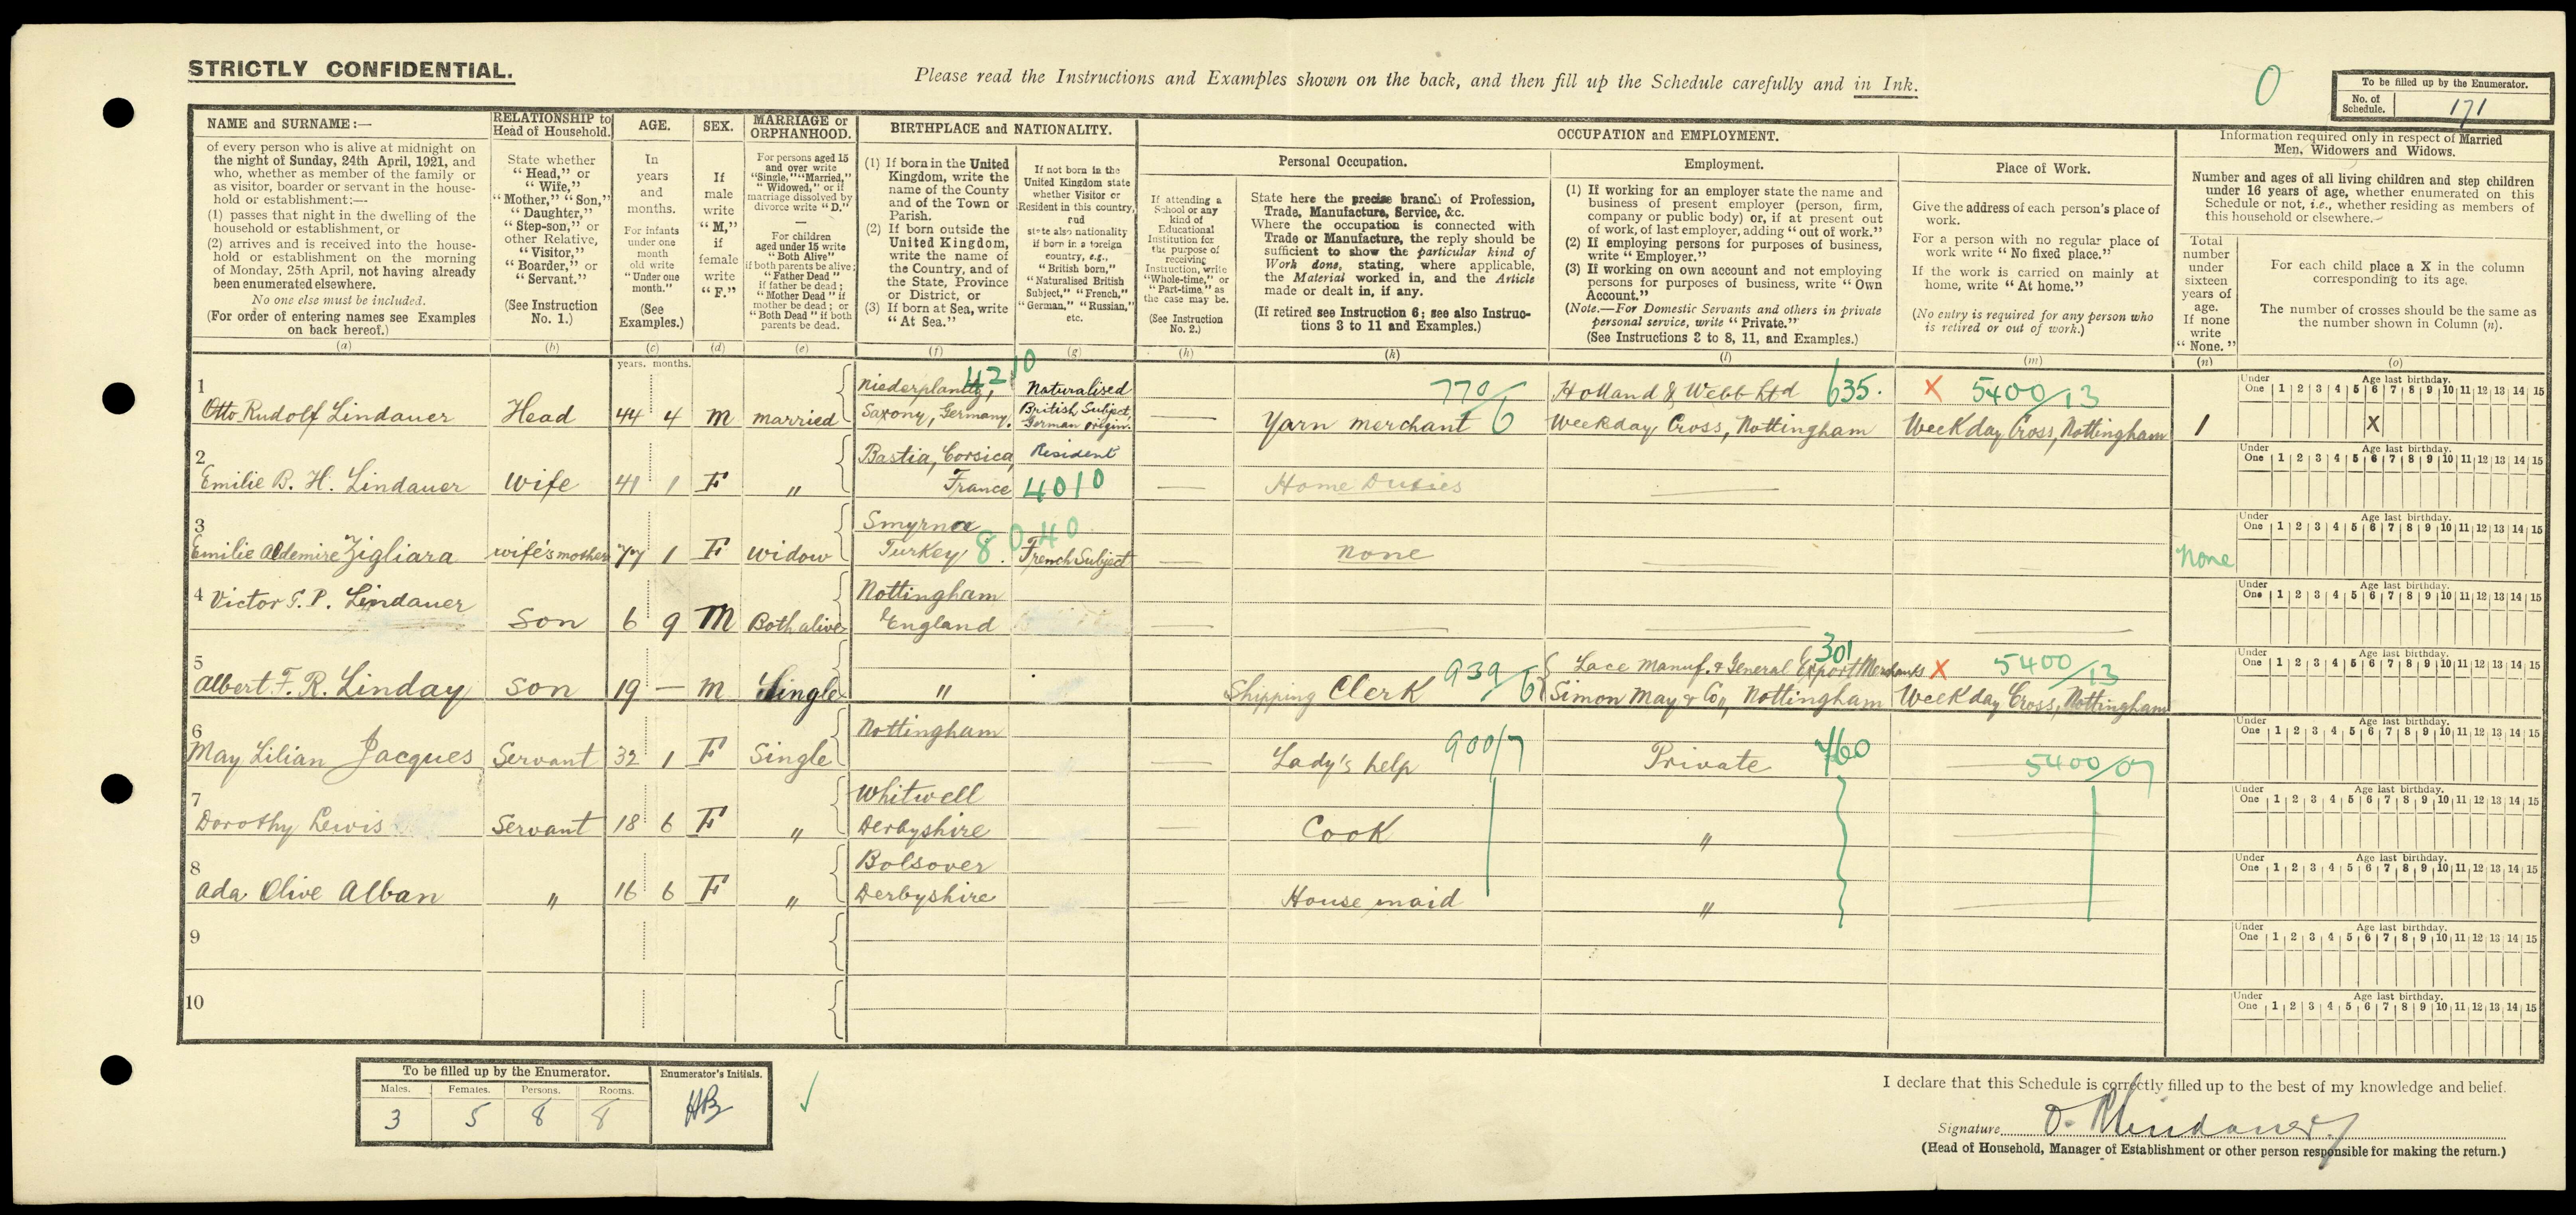 STRICTLY CONFIDENTIAL.
Please read the Instructions and Examples shown on the back, and then fill up the Schedule carefully and in Ink.
0
To be filled up by the Enumerator.
No. of Schedule. 171
NAME and SURNAME:—
of every person who is alive at midnight on
the night of Sunday, 24th April, 1921, and
who, whether as member of the family or
as visitor, boarder or servant in the house-
hold or establishment:—
(1) passes that night in the dwelling of the
household or establishment, or
(2) arrives and is received into the house-
hold or establishment on the morning
of Monday, 25th April, not having already
been enumerated elsewhere.
No one else must be included.
(For order of entering names see Examples
on back hereof.)
(a)
RELATIONSHIP to
Head of Household.
State whether
"Head," or
"Wife,"
"Mother," "Son,"
"Daughter,"
"Step-son," or
other Relative,
"Visitor,"
"Boarder," or
"Servant."
(See Instruction
No. 1.)
(b)
AGE.
In
years
and
months.
For infants
under one
month
old write
"Under one
month."
(See
Examples.)
(c)
SEX.
If
male
write
"M,"
if
female
write
"F."
(d)
MARRIAGE or
ORPHANHOOD.
For persons aged 15
and over write
"Single," "Married,"
"Widowed," or if
marriage dissolved by
divorce write "D."
—
For children
aged under 15 write
"Both Alive"
if both parents be alive;
"Father Dead"
if father be dead;
"Mother Dead" if
mother be dead; or
"Both Dead" if both
parents be dead.
(e)
BIRTHPLACE and NATIONALITY.
(1) If born in the United
Kingdom, write the
name of the County
and of the Town or
Parish.
(2) If born outside the
United Kingdom,
write the name of
the Country, and of
the State, Province
or District, or
(3) If born at Sea, write
"At Sea."
(f)
If not born in the
United Kingdom state
whether Visitor or
Resident in this country,
and
state also nationality
if born in a foreign
country, e.g.,
"British born,"
"Naturalised British
Subject," "French,"
"German," "Russian,"
etc.
(g)
OCCUPATION and EMPLOYMENT.
Personal Occupation.
If attending a
School or any
kind of
Educational
Institution for
the purpose of
receiving
Instruction, write
"Whole-time," or
"Part-time" as
the case may be.
(See Instruction
No. 2.)
(h)
State here the precise branch of Profession,
Trade, Manufacture, Service, &c.
Where the occupation is connected with
Trade or Manufacture, the reply should be
sufficient to show the particular kind of
Work done, stating, where applicable,
the Material worked in, and the Article
made or dealt in, if any.
(If retired see Instruction 6; see also Instruc-
tions 3 to 11 and Examples.)
(k)
Employment.
(1) If working for an employer state the name and
business of present employer (person, firm,
company or public body) or, if at present out
of work, of last employer, adding "out of work."
(2) If employing persons for purposes of business,
write "Employer."
(3) If working on own account and not employing
persons for purposes of business, write "Own
Account."
(Note.—For Domestic Servants and others in private
personal service, write "Private."
(See Instructions 3 to 8, 11, and Examples.)
(l)
Place of Work.
Give the address of each person's place of
work.
For a person with no regular place of
work write "No fixed place."
If the work is carried on mainly at
home, write "At home."
(No entry is required for any person who
is retired or out of work.)
(m)
Information required only in respect of Married
Men, Widowers and Widows.
Number and ages of all living children and step children
under 16 years of age, whether enumerated on this
Schedule or not, i.e., whether residing as members of
this household or elsewhere.—
Total
number
under
sixteen
years of
age.
If none
write
"None."
(n)
For each child place a X in the column
corresponding to its age.
The number of crosses should be the same as
the number shown in Column (n).
(o)
years. months.
1 Otto Rudolf Lindauer Head 44 4 M married Niederplanitz, Saxony, Germany. 4210 Naturalised British Subject, German origin. — Yarn merchant 770/6 Holland & Webb Ltd 635. Weekday Cross, Nottingham X 5400/13 Weekday Cross, Nottingham 1
Under One 1 2 3 4 5 6 7 8 9 10 11 12 13 14 15
Age last birthday.
X
2 Emilie B. H. Lindauer wife 41 1 F " Bastia, Corsica, France Resident 4010 — Home Duties —
Under One 1 2 3 4 5 6 7 8 9 10 11 12 13 14 15
Age last birthday.
3 Emilie Aldemire Zigliara wife's mother 77 1 F widow Smyrna Turkey 8040 French Subject — none — None
Under One 1 2 3 4 5 6 7 8 9 10 11 12 13 14 15
Age last birthday.
4 Victor T. P. Lindauer son 6 9 M Both alive Nottingham England — — — —
Under One 1 2 3 4 5 6 7 8 9 10 11 12 13 14 15
Age last birthday.
5 Albert F. R. Linday son 19 — m Single " Shipping Clerk 939/6 Lace Manuf. & General Export Merchants 301 Simon May & Co, Nottingham X 5400/13 Weekday Cross, Nottingham
Under One 1 2 3 4 5 6 7 8 9 10 11 12 13 14 15
Age last birthday.
6 May Lilian Jacques Servant 32 1 F Single Nottingham — Lady's help 900/7 Private 760 — 5400/07
Under One 1 2 3 4 5 6 7 8 9 10 11 12 13 14 15
Age last birthday.
7 Dorothy Lewis Servant 18 6 F " Whitwell Derbyshire — Cook " —
Under One 1 2 3 4 5 6 7 8 9 10 11 12 13 14 15
Age last birthday.
8 Ada Olive Alban " 16 6 F " Bolsover Derbyshire — House maid " —
Under One 1 2 3 4 5 6 7 8 9 10 11 12 13 14 15
Age last birthday.
9
Under One 1 2 3 4 5 6 7 8 9 10 11 12 13 14 15
Age last birthday.
10
Under One 1 2 3 4 5 6 7 8 9 10 11 12 13 14 15
Age last birthday.
To be filled up by the Enumerator.
Males. Females. Persons. Rooms.
3 5 8 8
Enumerator's Initials.
HB
I declare that this Schedule is correctly filled up to the best of my knowledge and belief.
Signature O. R. Lindauer
(Head of Household, Manager of Establishment or other person responsible for making the return.)